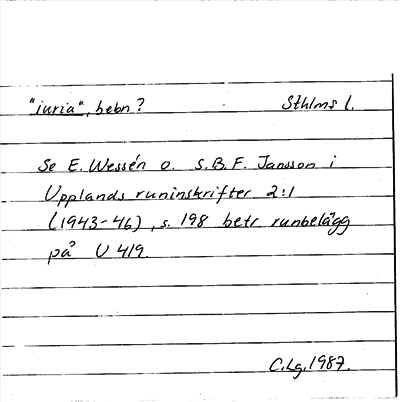 "iuria", bebn? Sthlms l.
Se E. Wessén o. S.B.F. Jansson i
Upplands runinskrifter 2:1
(1943-46), s. 198 betr. runbelägg
på U 419.
C.Lg. 1987.